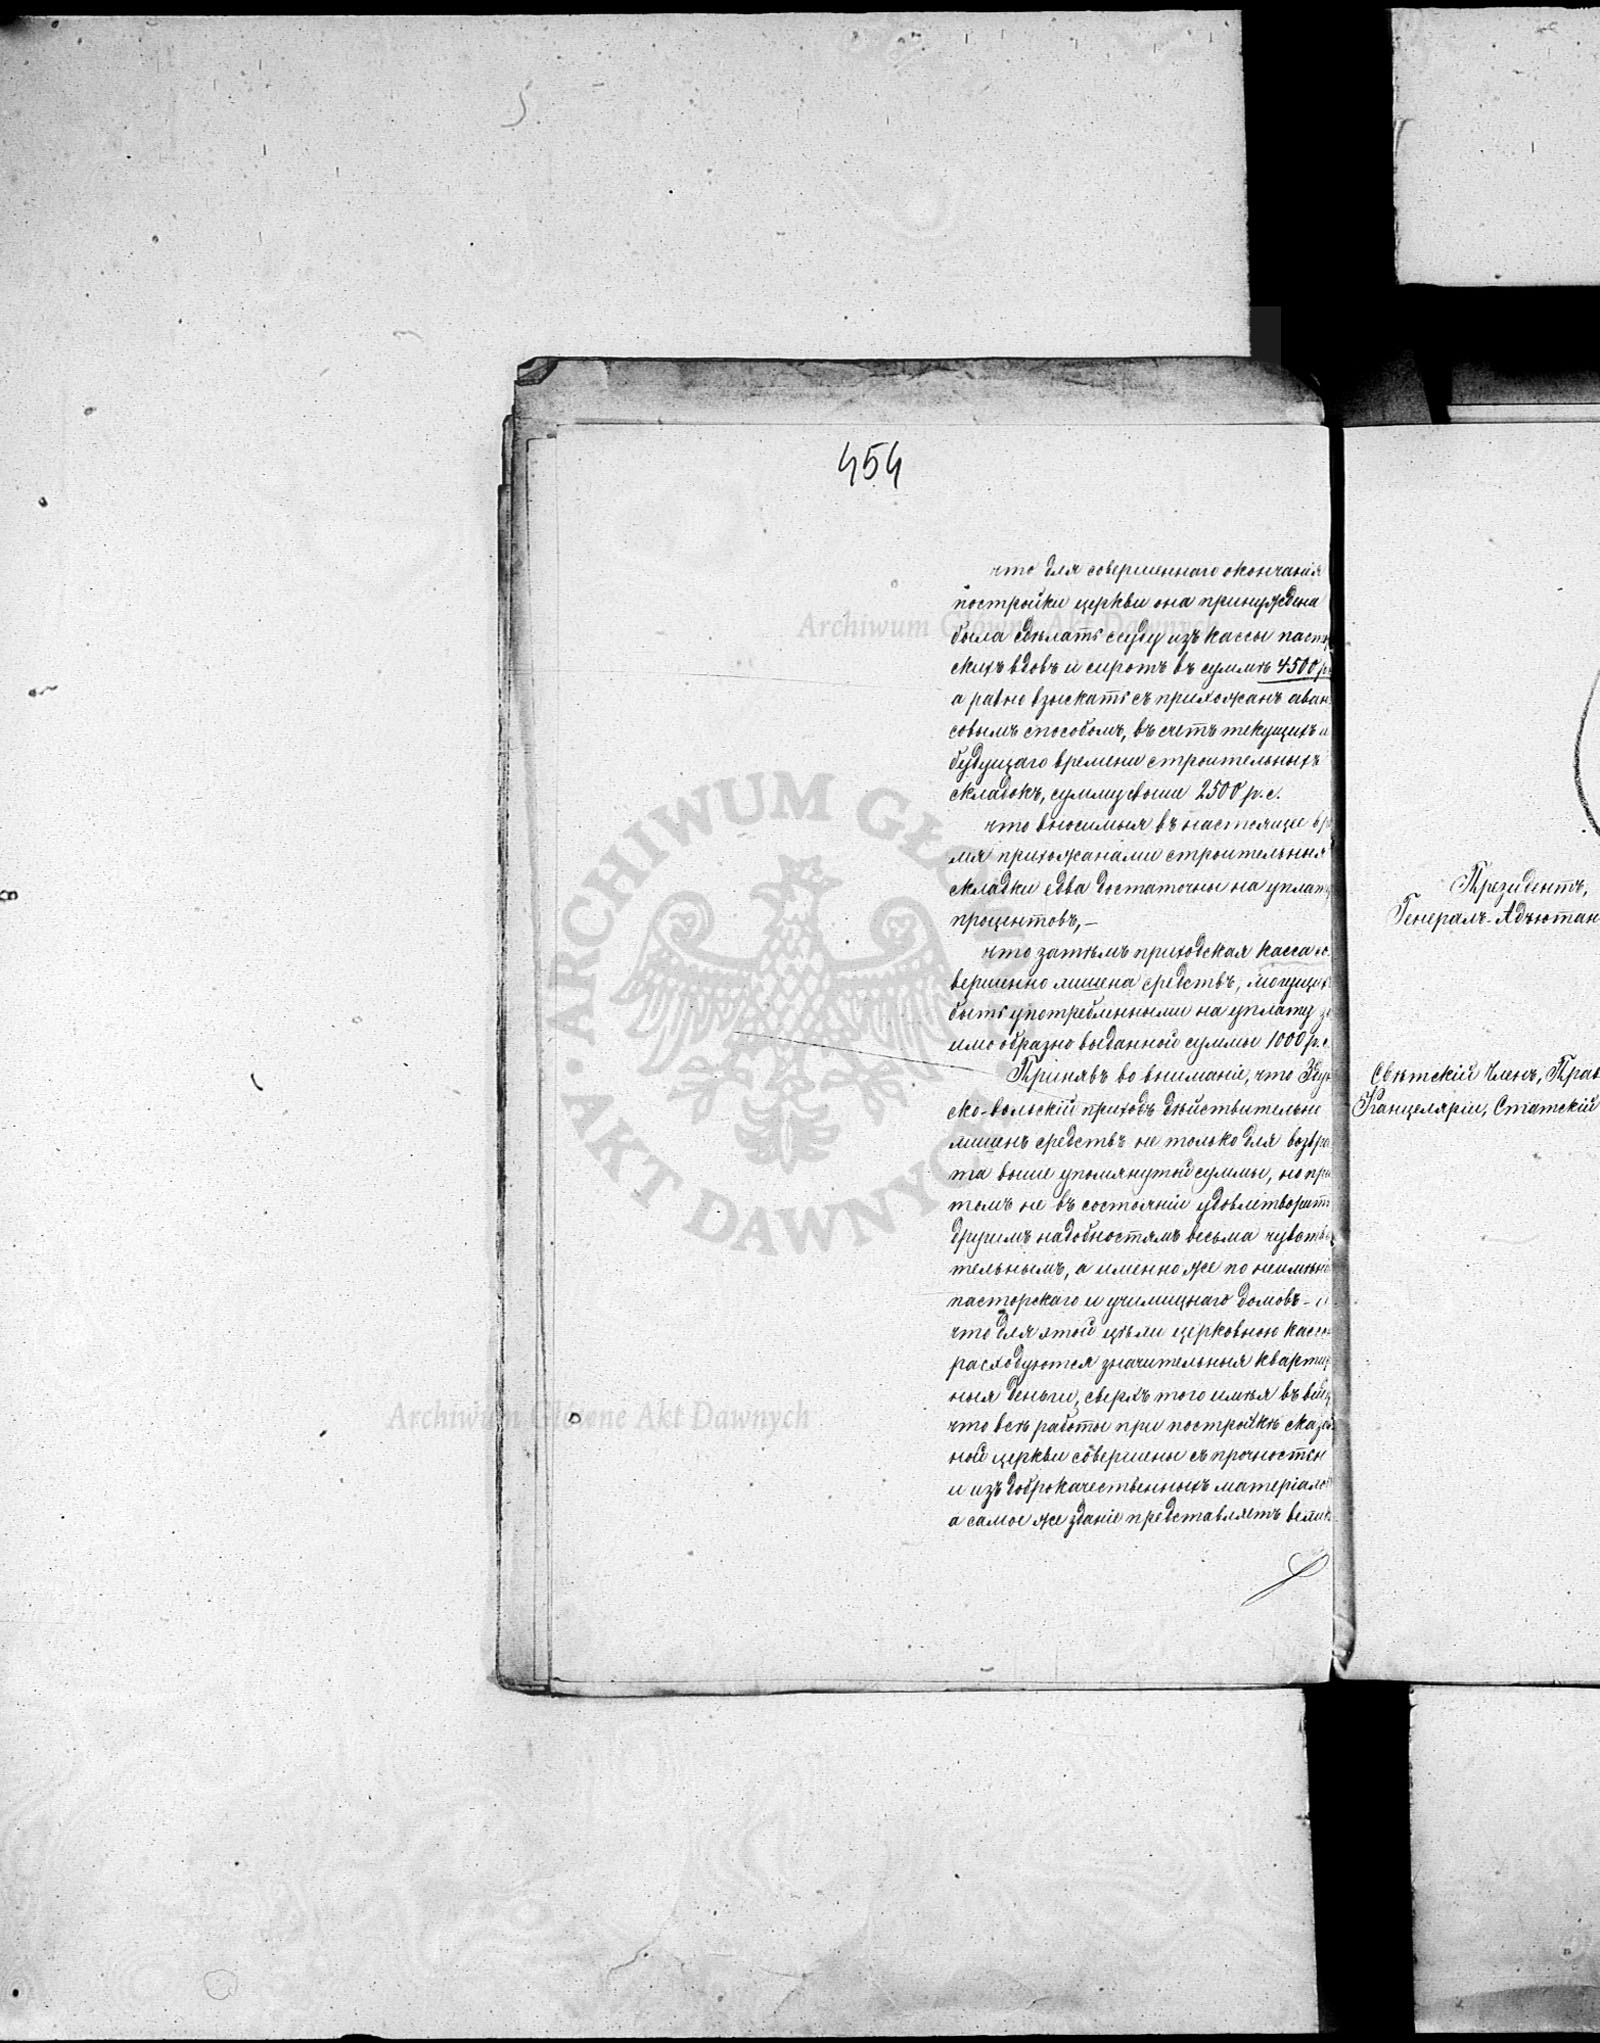 454
что для совершеннаго окончанія
постройки церкви она принуждена
была сдѣлать ссуду изъ кассы паст
скихъ вдовъ и сиротъ въ суммѣ 4500 р
а равно взыскать съ прихожанъ аван
совымъ способомъ, въ счетъ текущихъ и
будущаго времени строительныхъ
складокъ, сумму свыше 2500 р. с.
что вносимыя въ настоящее вр
мя прихожанами строительныя
складки едва достаточны на уплату
процентовъ,—
что затѣмъ приходская касса со
вершенно лишена средствъ, могущихъ
быть употребленными на уплату за
имообразно выданной суммы 1000 р. с.
Принявъ во вниманіе, что Здун
ско-вольскій приходъ дѣйствительно
лишенъ средствъ не только для возвра
та выше упомянутой суммы, но при
томъ не въ состояніи удовлетворить
другимъ надобностямъ весьма чувстви
тельнымъ, а именно же по неимѣнію
пасторскаго и училищнаго домовъ - и
что для этой цѣли церковною кассою
расходуются значительныя квартир
ныя деньги, сверхъ того имѣя въ виду
что всѣ работы при постройкѣ сказан
ной церкви совершены съ прочностію
и изъ доброкачественныхъ матеріаловъ
а самое же зданіе представляетъ велик
Президентъ,
Генералъ-Адъютан
Свѣтскій Членъ, Прав
Канцеляріи, Статскій
Archiwum Główne Akt Dawnych
ARCHIWUM GŁÓWNE
AKT DAWNYCH
Archiwum Główne Akt Dawnych